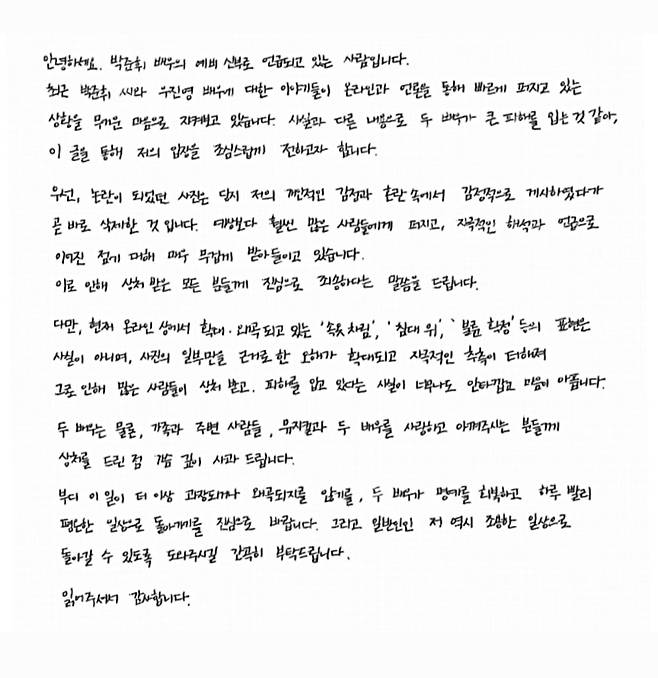 안녕하세요. 박준휘 배우의 예비 신부로 언급되고 있는 사람입니다.
최근 박준휘 씨와 우진영 배우에 대한 이야기들이 온라인과 언론을 통해 빠르게 퍼지고 있는
상황을 무거운 마음으로 지켜보고 있습니다. 사실과 다른 내용으로 두 배우가 큰 피해를 입는 것 같아,
이 글을 통해 저의 입장을 조심스럽게 전하고자 합니다.
우선, 논란이 되었던 사진은 당시 저의 개인적인 감정과 혼란 속에서 감정적으로 게시하였다가
곧 바로 삭제한 것 입니다. 예상보다 훨씬 많은 사람들에게 퍼지고, 자극적인 해석과 언급으로
이어진 점에 대해 매우 무겁게 받아들이고 있습니다.
이로 인해 상처 받은 모든 분들께 진심으로 죄송하다는 말씀을 드립니다.
다만, 현재 온라인 상에서 확대·왜곡되고 있는 '속옷 차림', '침대 위', '불륜 확정' 등의 표현은
사실이 아니며, 사진의 일부만을 근거로 한 오해가 확대되고 자극적인 추측이 더해져
그로 인해 많은 사람들이 상처 받고. 피해를 입고 있다는 사실이 너무나도 안타깝고 마음이 아픕니다.
두 배우는 물론, 가족과 주변 사람들, 뮤지컬과 두 배우를 사랑하고 아껴주시는 분들께
상처를 드린 점 가슴 깊이 사과 드립니다.
부디 이 일이 더 이상 과장되거나 왜곡되지를 않기를, 두 배우가 명예를 회복하고 하루 빨리
평온한 일상으로 돌아가기를 진심으로 바랍니다. 그리고 일반인인 저 역시 조용한 일상으로
돌아갈 수 있도록 도와주시길 간곡히 부탁드립니다.
읽어주셔서 감사합니다.